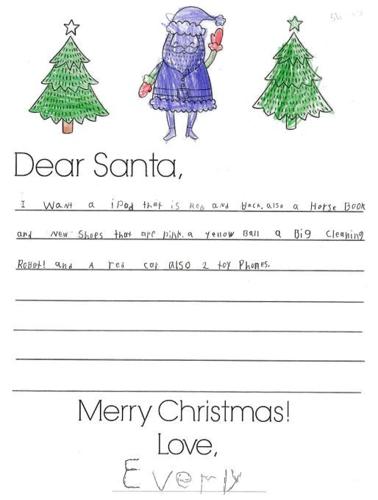 Dear Santa,
I want a iPod that is Red and Back. also a Horse BOOK
and New Shoes that are pink. a yellow Ball a Big Cleaning
ROBot! and A red car also 2 toy Phones.
Merry Christmas!
Love,
Everly